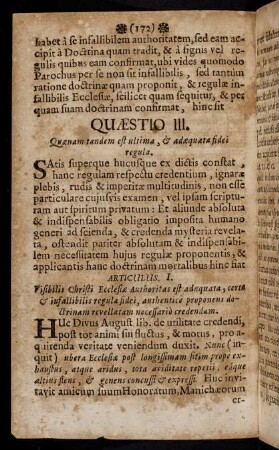 ❋ (172) ❋
habet à se infallibilem authoritatem, sed eam ac-
cipit à Doctrina quam tradit, & à signis vel re-
gulis quibus eam confirmat, ubi vides quomodo
Parochus per se non sit infallibilis, sed tantùm
ratione doctrinæ quam proponit, & regulæ in-
fallibilis Ecclesiæ, scilicet quam sequitur, & per
quam suam doctrinam confirmat, hinc sit
QUÆSTIO III.
Quænam tandem est ultima, & adæquata fidei
regula.
SAtis superque hucusque ex dictis constat,
hanc regulam respectu credentium, ignaræ
plebis, rudis & imperitæ multitudinis, non esse
particulare cujusvis examen, vel ipsam scriptu-
ram aut spiritum privatum: Et aliunde absoluta
& indispensabilis obligatio imposita humano
generi ad scienda, & credenda mysteria revela-
ta, ostendit pariter absolutam & indispensabi-
lem necessitatem hujus regulæ proponentis, &
applicantis hanc doctrinam mortalibus hinc fiat
ARTICULUS. I.
Visibilis Christi Ecclesiæ Authoritas est adæquata, certa
& infallibilis regula fidei, authenticè proponens do-
ctrinam revelatam necessariò credendam.
HUc Divus August. lib. de utilitate credendi,
post tot animi sui fluctus, & motus, pro ac-
quirenda veritate veniendum duxit. Nunc (in-
quit) ubera Ecclesiæ post longissimam sitim prope ex-
haustus, atque aridus, tota aviditate repetii, eaque
altius flens, & gemens concussi & expressi. Huc invi-
tavit amicum suum Honoratum, Manichæorum
er-